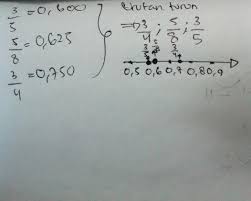 3/5 = 0,600
5/8 = 0,625
3/4 = 0,750
Urutan turun
⇒ 3/4 ; 5/8 ; 3/5
3/5 5/8 3/4
0,5 0,6 0,7 0,8 0,9